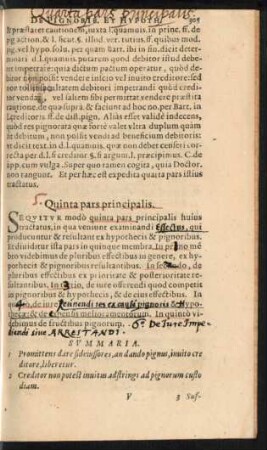 Quarta pars principalis.
DE PIGNORIB. ET HYPOTH. 305
& præstaret cautionem, iuxta l. quamuis. in princ. ff. de
pig. action. & l. sicut. §. illud. vel extraneus, ff. quibus mod.
pig. vel hypo. solu. per quam Bart. ibi in fin. dicit deter-
minari d. l. quamuis. putarem quod debitor istud debet
impetrare: quia dictum pactum operatur, quod debi-
tor inops potest in solutum dare vel inuito creditore: sed
non tollit solitum debitori impetrandi quod creditor
vendat pignus, vel saltem sibi permittat vendere præstita
cautione, de qua supra, & faciunt ad hoc no. per Bart. in
l. creditoris. ff. de dist. pign. Alias esset valide indecens,
quod pro quantitate quæ forte valet vltra duplum quam
th. debetur, non possit vendi ad beneficium debitoris: &
dicit text. in d. l. quamuis. quod non debet onerari cer-
tari debitor à creditore
app. cum vulga. Super quo tamen cogita, quia Doctor.
non tangunt. Et per hæc est expedita quarta pars istius
tractatus.
5. Quinta pars principalis.
SEQVITVR modò quinta pars principalis huius
tractatus, in qua veniunt examinandi effectus, qui
producuntur & resultant ex hypothecis & pignoribus.
Et diuiditur ista pars in quinque membra. In primo mē
bro videbimus de pluribus effectibus in genere, ex hy-
pothecis & pignoribus resultantibus. In secundo, de
pluribus effectibus ex prioritate & posterioritate re-
sultantibus. In tertio, de iure offerendi quod competit
in pignoribus & hypothecis, & de eius effectibus. In
quarto, de iure retinendi res ex causa pignoris &
hypothecæ: & de expensis meliorationum. In quinto vi-
debimus de fructibus pignorum, 6º. De Iure Impe-
diendi siue ARRESTANDI.
SVMMARIA.
1 Promittens dare fideiussores, an dando pignus, inuito cre
ditore, liberetur.
2 Creditor non potest inuitus adstringi ad pignorum custo
diam.
V 3 Suf-